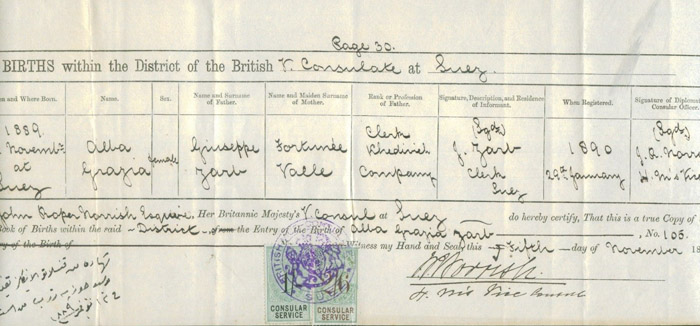 Page 30.
BIRTHS within the District of the British V. Consulate at Suez.
n and Where Born. Name. Sex. Name and Surname of Father. Name and Maiden Surname of Mother. Rank or Profession of Father. Signature, Description, and Residence of Informant. When Registered. Signature of Diplom Consular Officer.
1889. Clerk (Sgd) (Sgd)
Novembr Alba female Giuseppe Fortunée Khedivieh J. Zarb 1890 J. R. Norri
at Grazia Zarb Valle Company Clerk 29th January H. M's Vice
Suez Suez
John Roper Norrish Esquire, Her Britannic Majesty's V. Consul at Suez do hereby certify, That this is a true Copy of
Book of Births within the said District of the Entry of the Birth of Alba Grazia Zarb No. 105.
y of the Birth of Witness my Hand and Seal, this Fifth day of November 18
J R Norrish.
H. M's Vice Consul
BRITISH
CONSULAR SERVICE
CONSULAR SERVICE